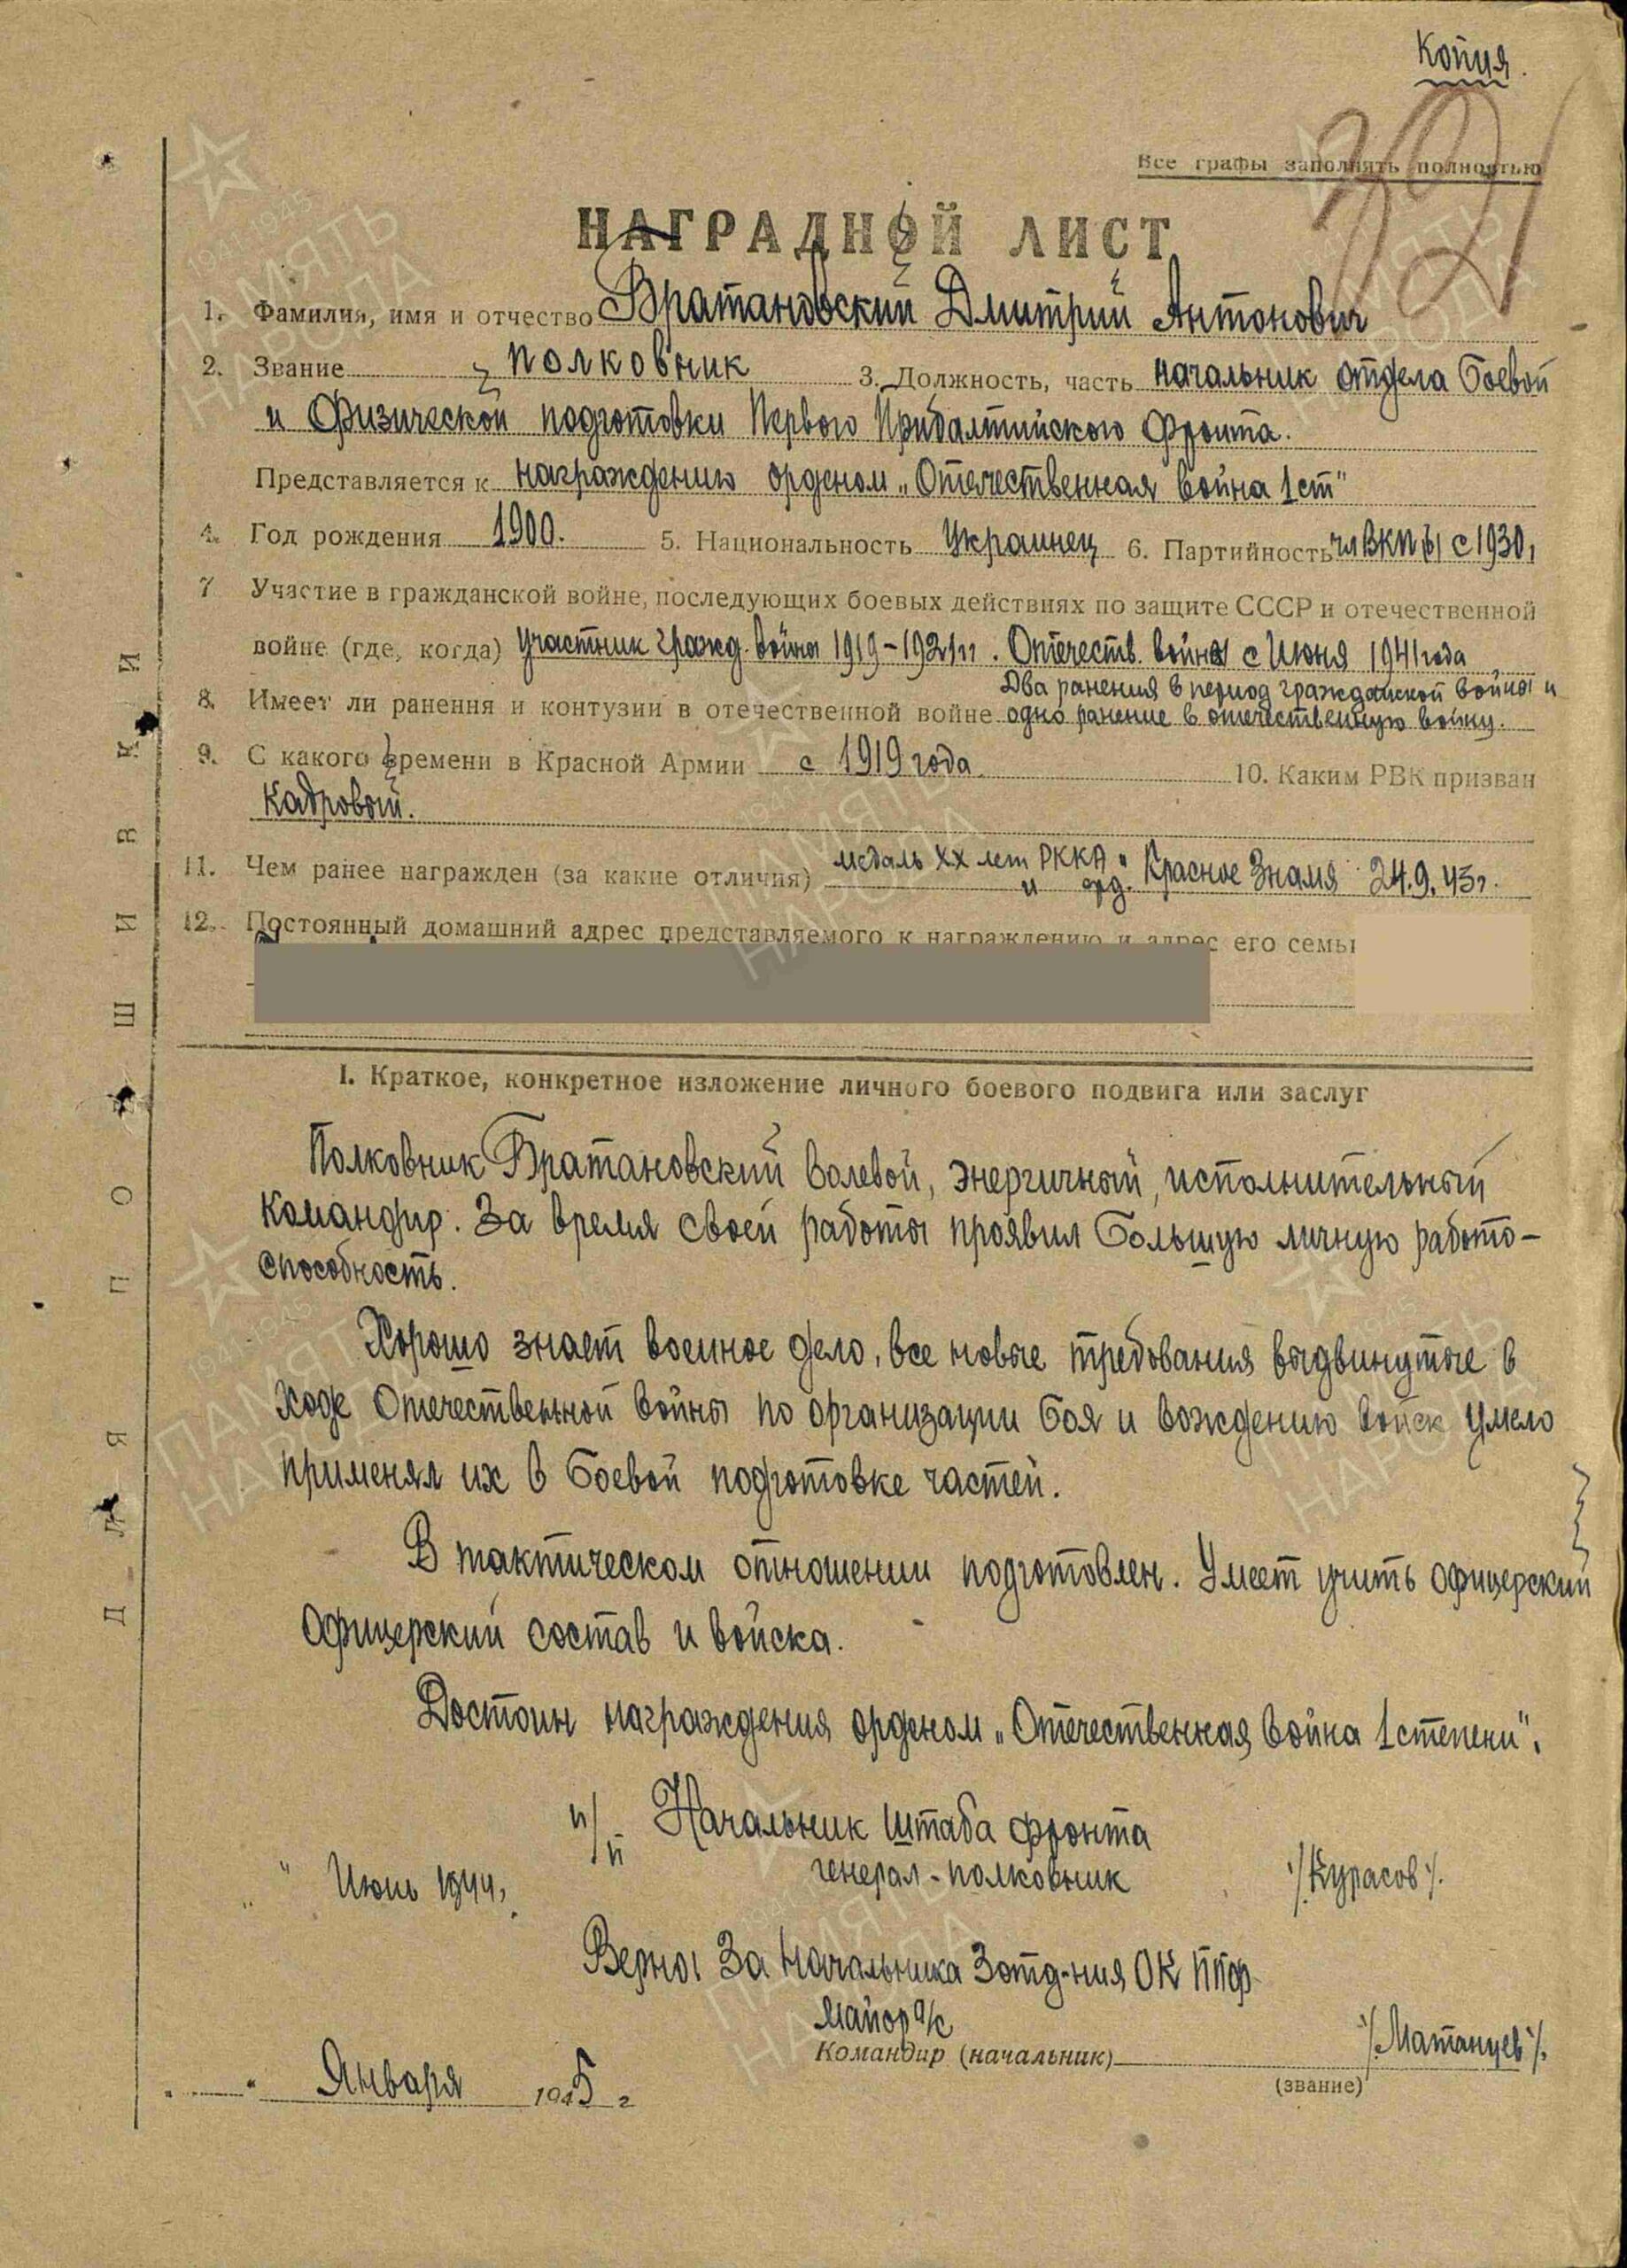 Копия.
Все графы заполнять полностью
НАГРАДНОЙ ЛИСТ
1. Фамилия, имя и отчество Братановский Дмитрий Антонович
2. Звание полковник 3. Должность, часть начальник отдела боевой
и физической подготовки Первого Прибалтийского фронта.
Представляется к награждению орденом „Отечественная война 1 ст"
4. Год рождения 1900. 5. Национальность Украинец 6. Партийность чл ВКП(б) с 1930,
7 Участие в гражданской войне, последующих боевых действиях по защите СССР и отечественной
войне (где, когда) участник гражд. войны 1919-1921 гг. Отечеств. войны с Июня 1941 года
8. Имеет ли ранения и контузии в отечественной войне Два ранения в период гражданской войны и
одно ранение в отечественную войну.
9. С какого времени в Красной Армии с 1919 года 10. Каким РВК призван
Кадровый.
11. Чем ранее награжден (за какие отличия) медаль XX лет РККА
и орд. „Красное Знамя" 24.9.43г.
12. Постоянный домашний адрес представляемого к награждению и адрес его семьи
I. Краткое, конкретное изложение личного боевого подвига или заслуг
Полковник Братановский волевой, энергичный, исполнительный
командир. За время своей работы проявил большую личную работо-
способность.
Хорошо знает военное дело, все новые требования выдвинутые в
ходе Отечественной войны по организации боя и вождению войск умело
применял их в боевой подготовке частей.
В тактическом отношении подготовлен. Умеет учить офицерский
офицерский состав и войска.
Достоин награждения орденом „Отечественная война 1 степени".
п/п Начальник штаба фронта
генерал-полковник /Курасов/.
" " Июнь 1944,
Верно: За Начальника 3 отд-ния ОК ППФ
майор а/с /Матанцев/.
Командир (начальник)
(звание)
" " Января 1945 г
ДЛЯ ПОДШИВКИ
1941-1945
ПАМЯТЬ
НАРОДА